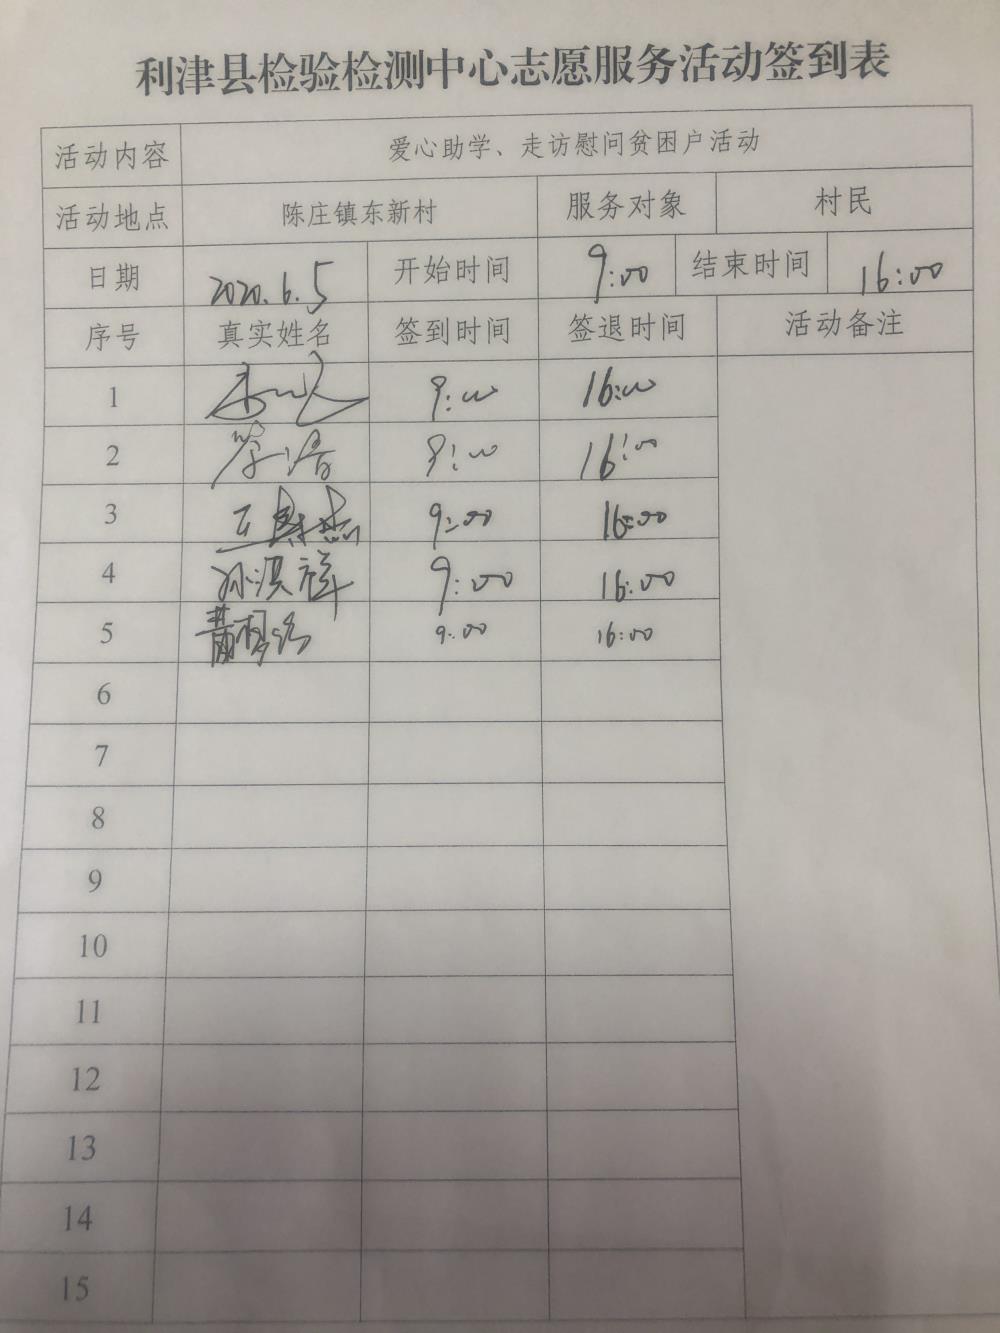 利津县检验检测中心志愿服务活动签到表
活动内容 爱心助学、走访慰问贫困户活动
活动地点 陈庄镇东新村 服务对象 村民
日期 2020.6.5 开始时间 9:00 结束时间 16:00
序号 真实姓名 签到时间 签退时间 活动备注
1 9:00 16:00
2 9:00 16:00
3 9:00 16:00
4 孙洪祥 9:00 16:00
5 9:00 16:00
6
7
8
9
10
11
12
13
14
15